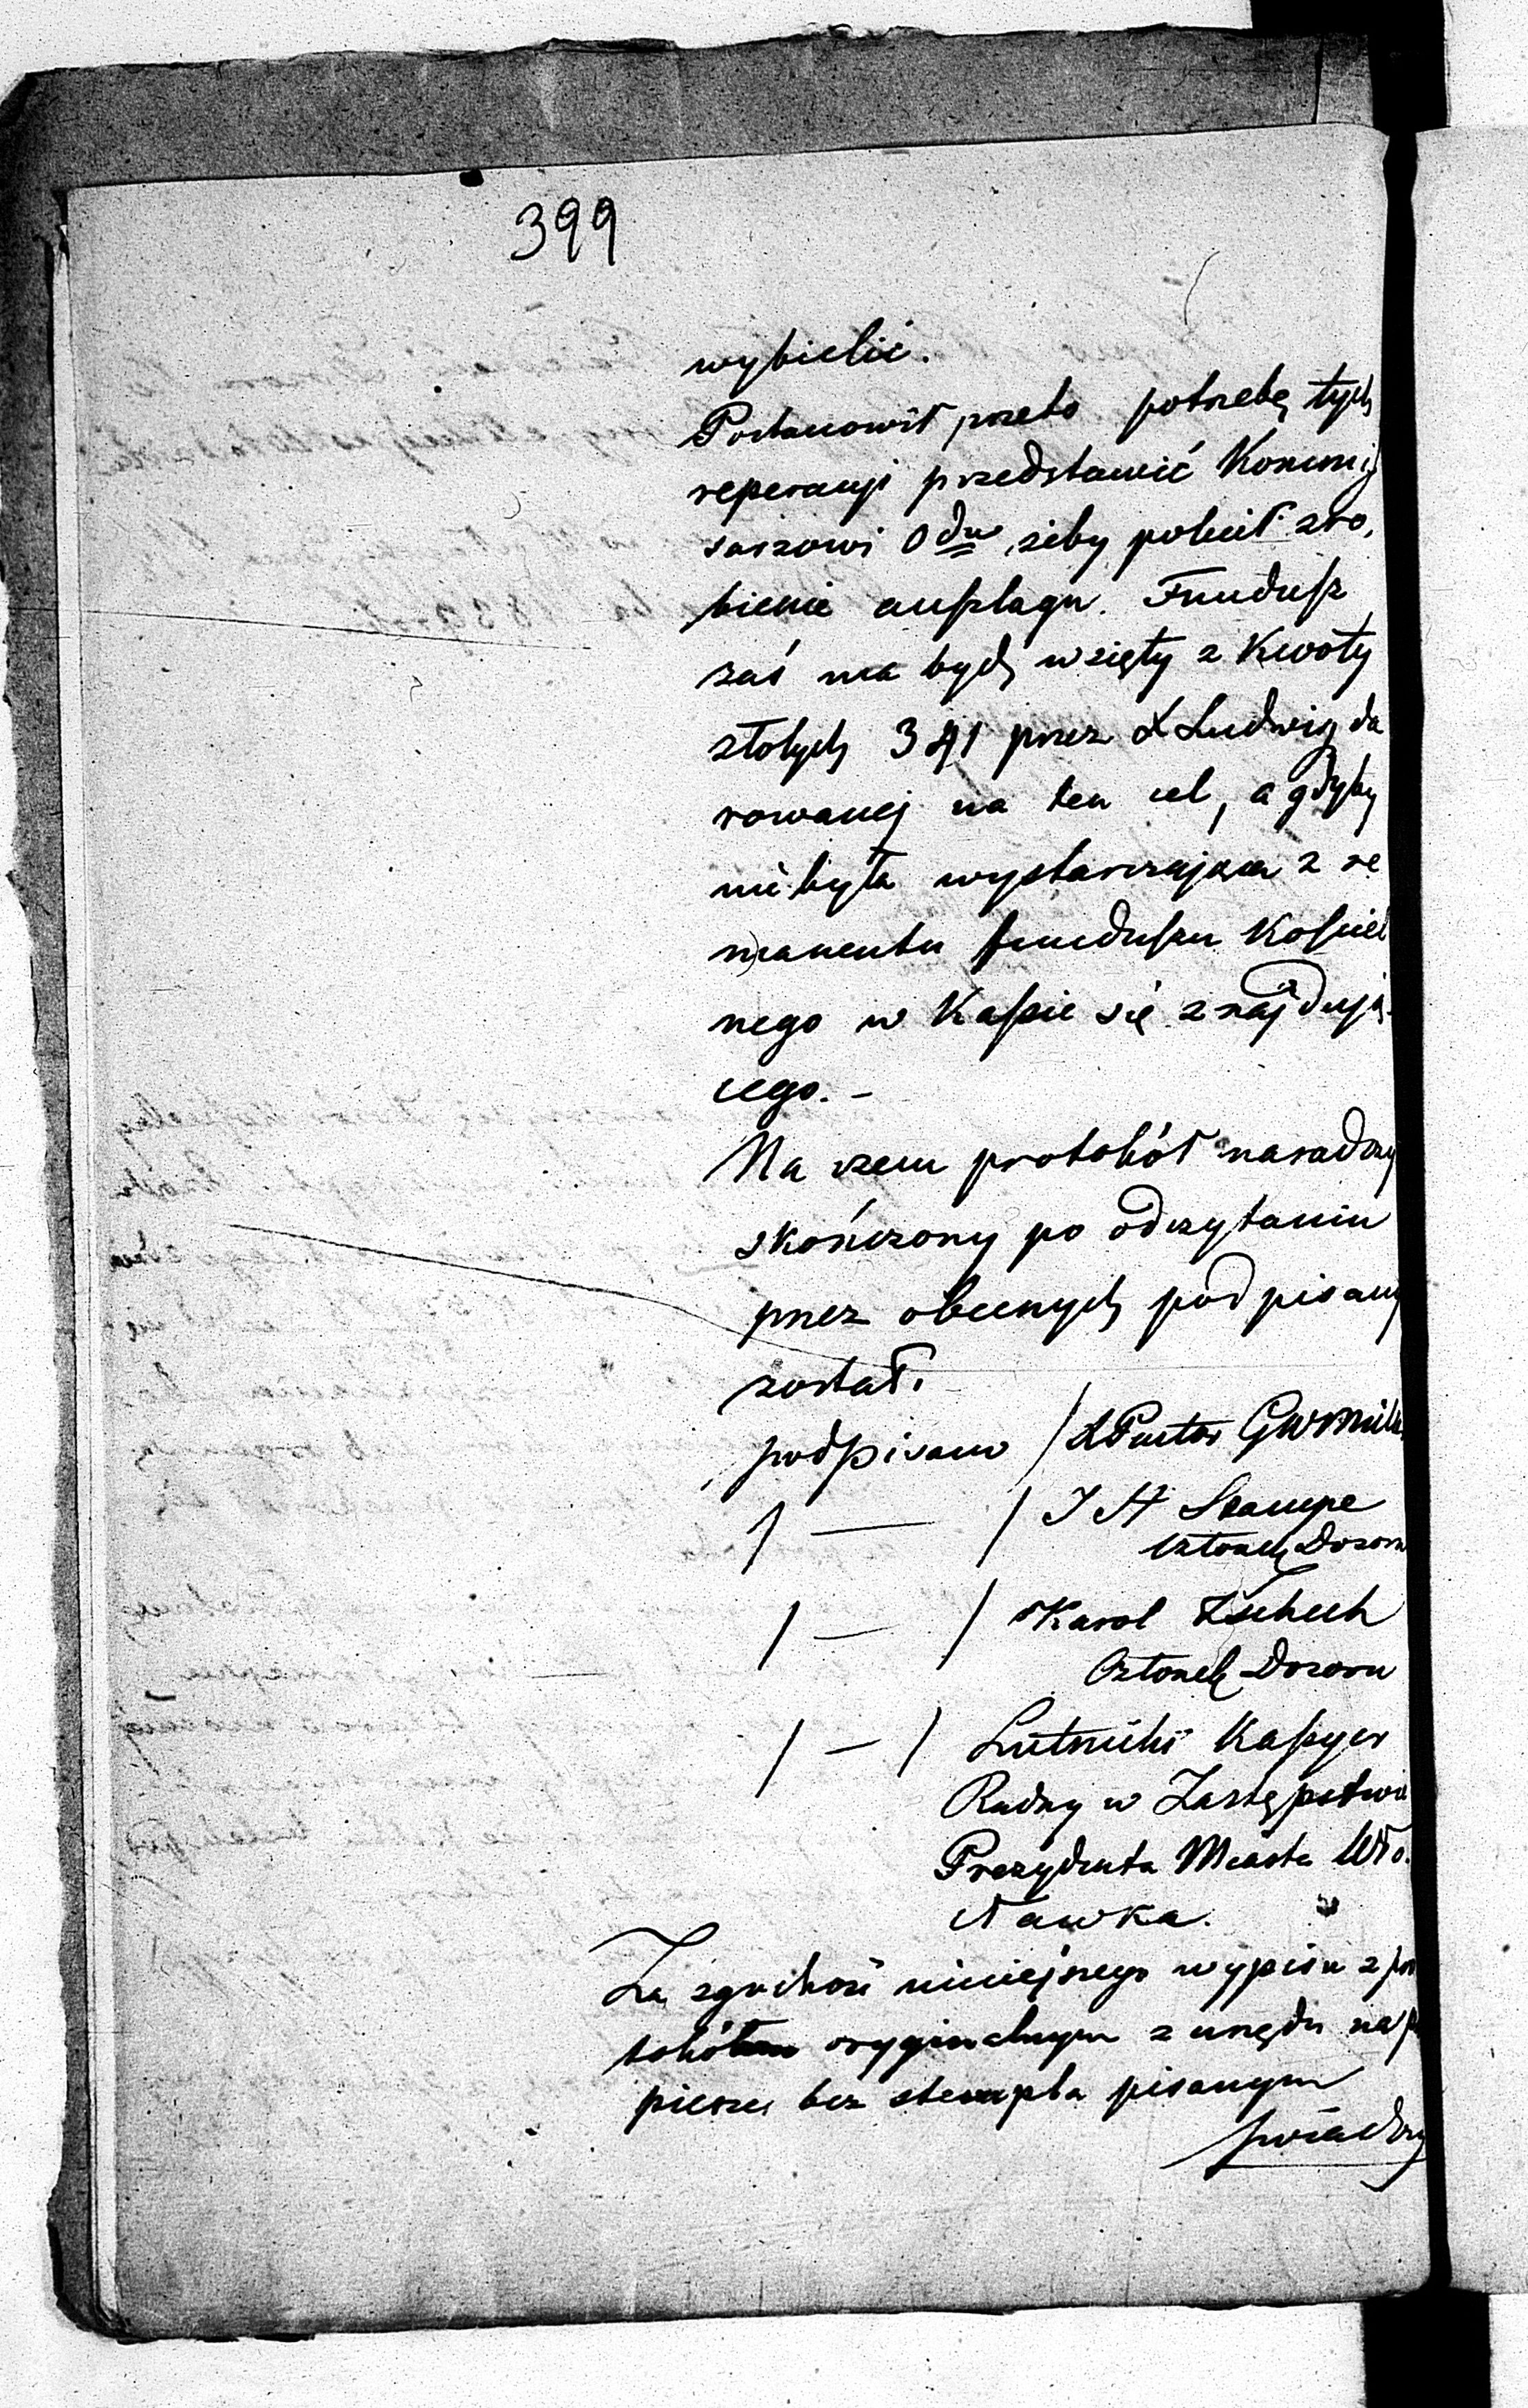 399
wybielić.
Postanowił przeto potrzebę tych
reperacyi przedstawić Kommis
sarzowi Odu, żeby polecił zro,
bienie anszlagu. Fundusz
zaś ma bydź wzięty z Kwoty
złotych 341 przez X Ludwig da
rowanej na ten cel, a gdyby
nie była wystarczająca z re
manentu funduszu Kościel
nego w Kassie się znajdują-
cego. -
Na czem protokół naradczy
skończony po odczytaniu
przez obecnych podpisany
został.
podpisano / X Pastor
/ — / J H Stampe
Członek Dozoru
/ — / Karol Zschech
Członek Dozoru
/ — / Lutnicki Kasper
Radny w Zastępstwie
Prezydenta Miasta Wło.
cławka.
Za zgodność niniejszego wypisu z pro
tokółem oryginalnym z urzędu na pa
pierze bez stempla pisanym
świadczy